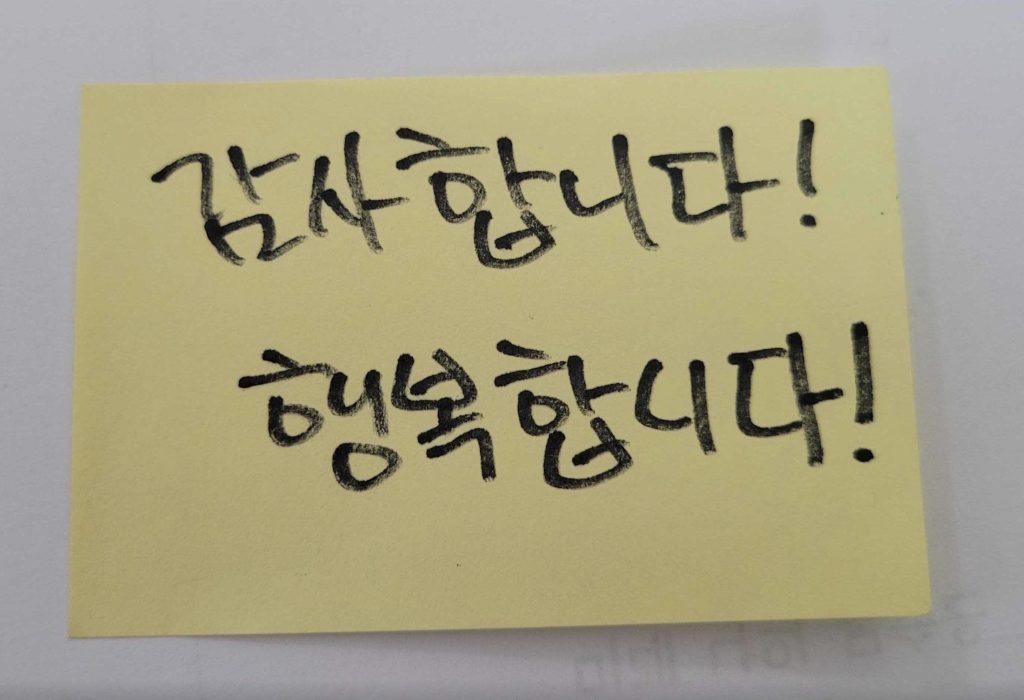 감사합니다!
행복합니다!